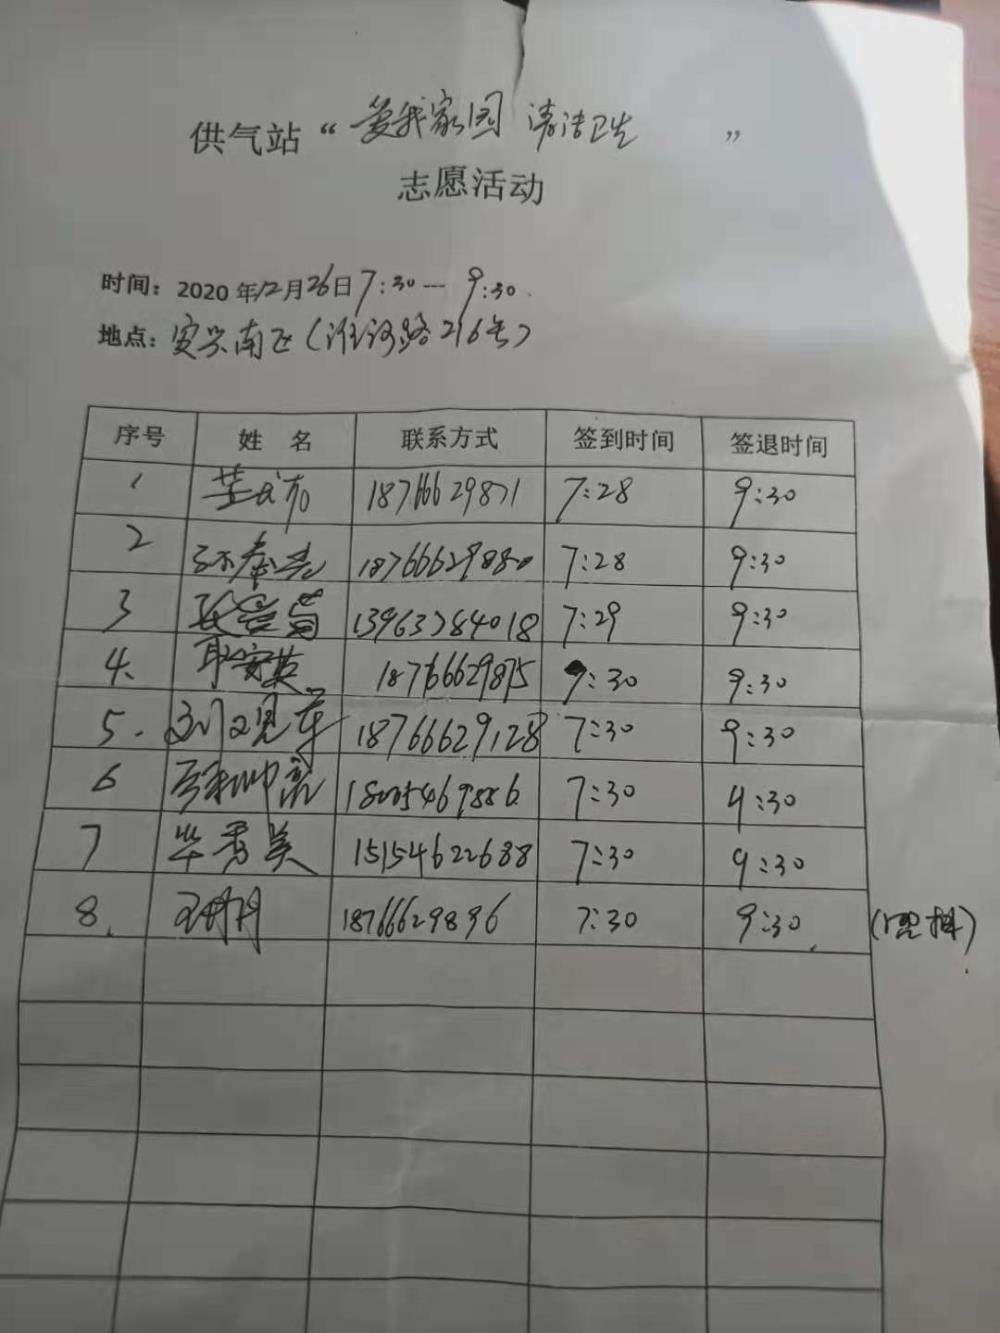 供气站“爱我家园 清洁卫生”
志愿活动
时间：2020年12月26日7:30---9:30.
地点：安兴南区(淮河路216号)
序号 姓名 联系方式 签到时间 签退时间
1 18766629871 7:28 9:30
2 18766629880 7:28 9:30
3 13963784018 7:29 9:30
4. 耿安英 18766629875 9:30 9:30
5. 18766629128 7:30 9:30
6 18005469886. 7:30 9:30
7 毕秀美 15154622688 7:30 9:30
8. 18766629896 7:30 9:30. (照相)